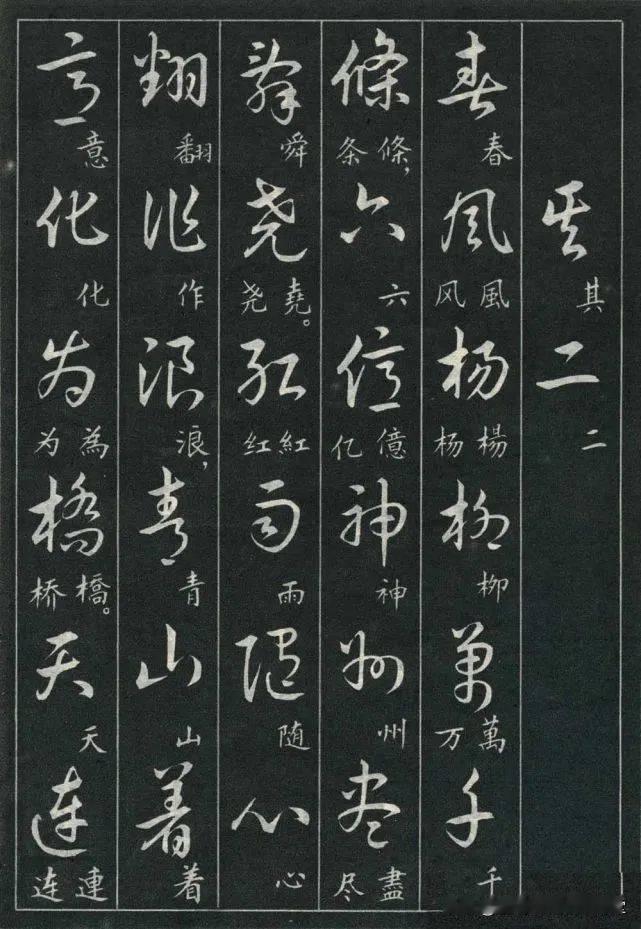 其二
其 二
春風楊柳萬千
春 風风 楊杨 柳 萬万 千
條六億神州盡
條，条 六 億亿 神 州 盡尽
舜堯紅雨随心
舜 堯。尧 紅红 雨 随 心
翻作浪青山着
翻 作 浪， 青 山 着
意化為橋天連
意 化 為为 橋。桥 天 連连